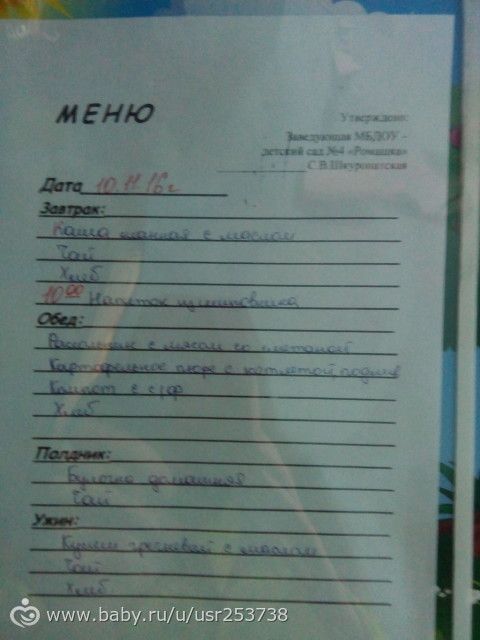 МЕНЮ
Утверждено:
Заведующая МБДОУ –
детский сад №4 «Ромашка»
С.В.Шкуропатская
Дата 10.11.16г
Завтрак:
Каша манная с маслом
Чай
Хлеб
10 00 Напиток из шиповника
Обед:
Рассольник с мясом со сметаной
Картофельное пюре с котлетой подлив
Компот с с/ф
Хлеб
Полдник:
Булочка домашняя
Чай
Ужин:
гречневый с маслом
Чай
Хлеб
www.baby.ru/u/usr253738